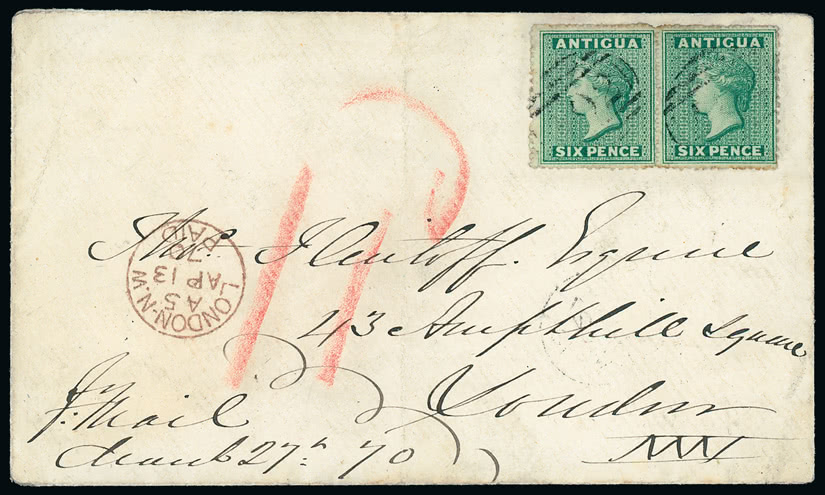 ANTIGUA
SIX PENCE
ANTIGUA
SIX PENCE
Esquire
43 Ampthill Square
London
NW
LONDON·N.W
A 5
AP 13
70
PAID
Mail
March 27th 70